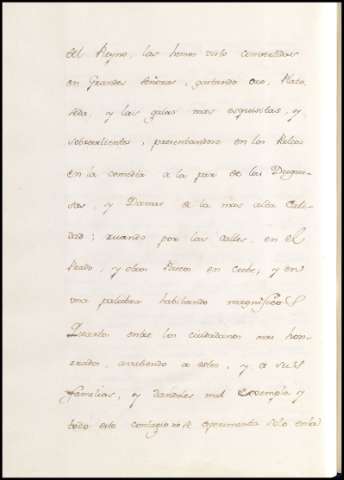 del Reyno, las hemos visto convertidas
en Grandes Señoras, gastando Oro, Plata
seda, y las galas mas esquisitas, y
sobresalientes, presentandose en los Palcos
en la comedia a la par de las Duque-
sas, y Damas de la mas alta Cali-
dad; ruando por las calles, en el
Prado, y otros Paseos en coche, y en
una palabra habitando magnificos
Quartos entre los ciudadanos mas hon-
rrados, arruinando a estos, y a sus
familias, y dandoles mal exemplo y
todo este contagio no se experimenta solo en la